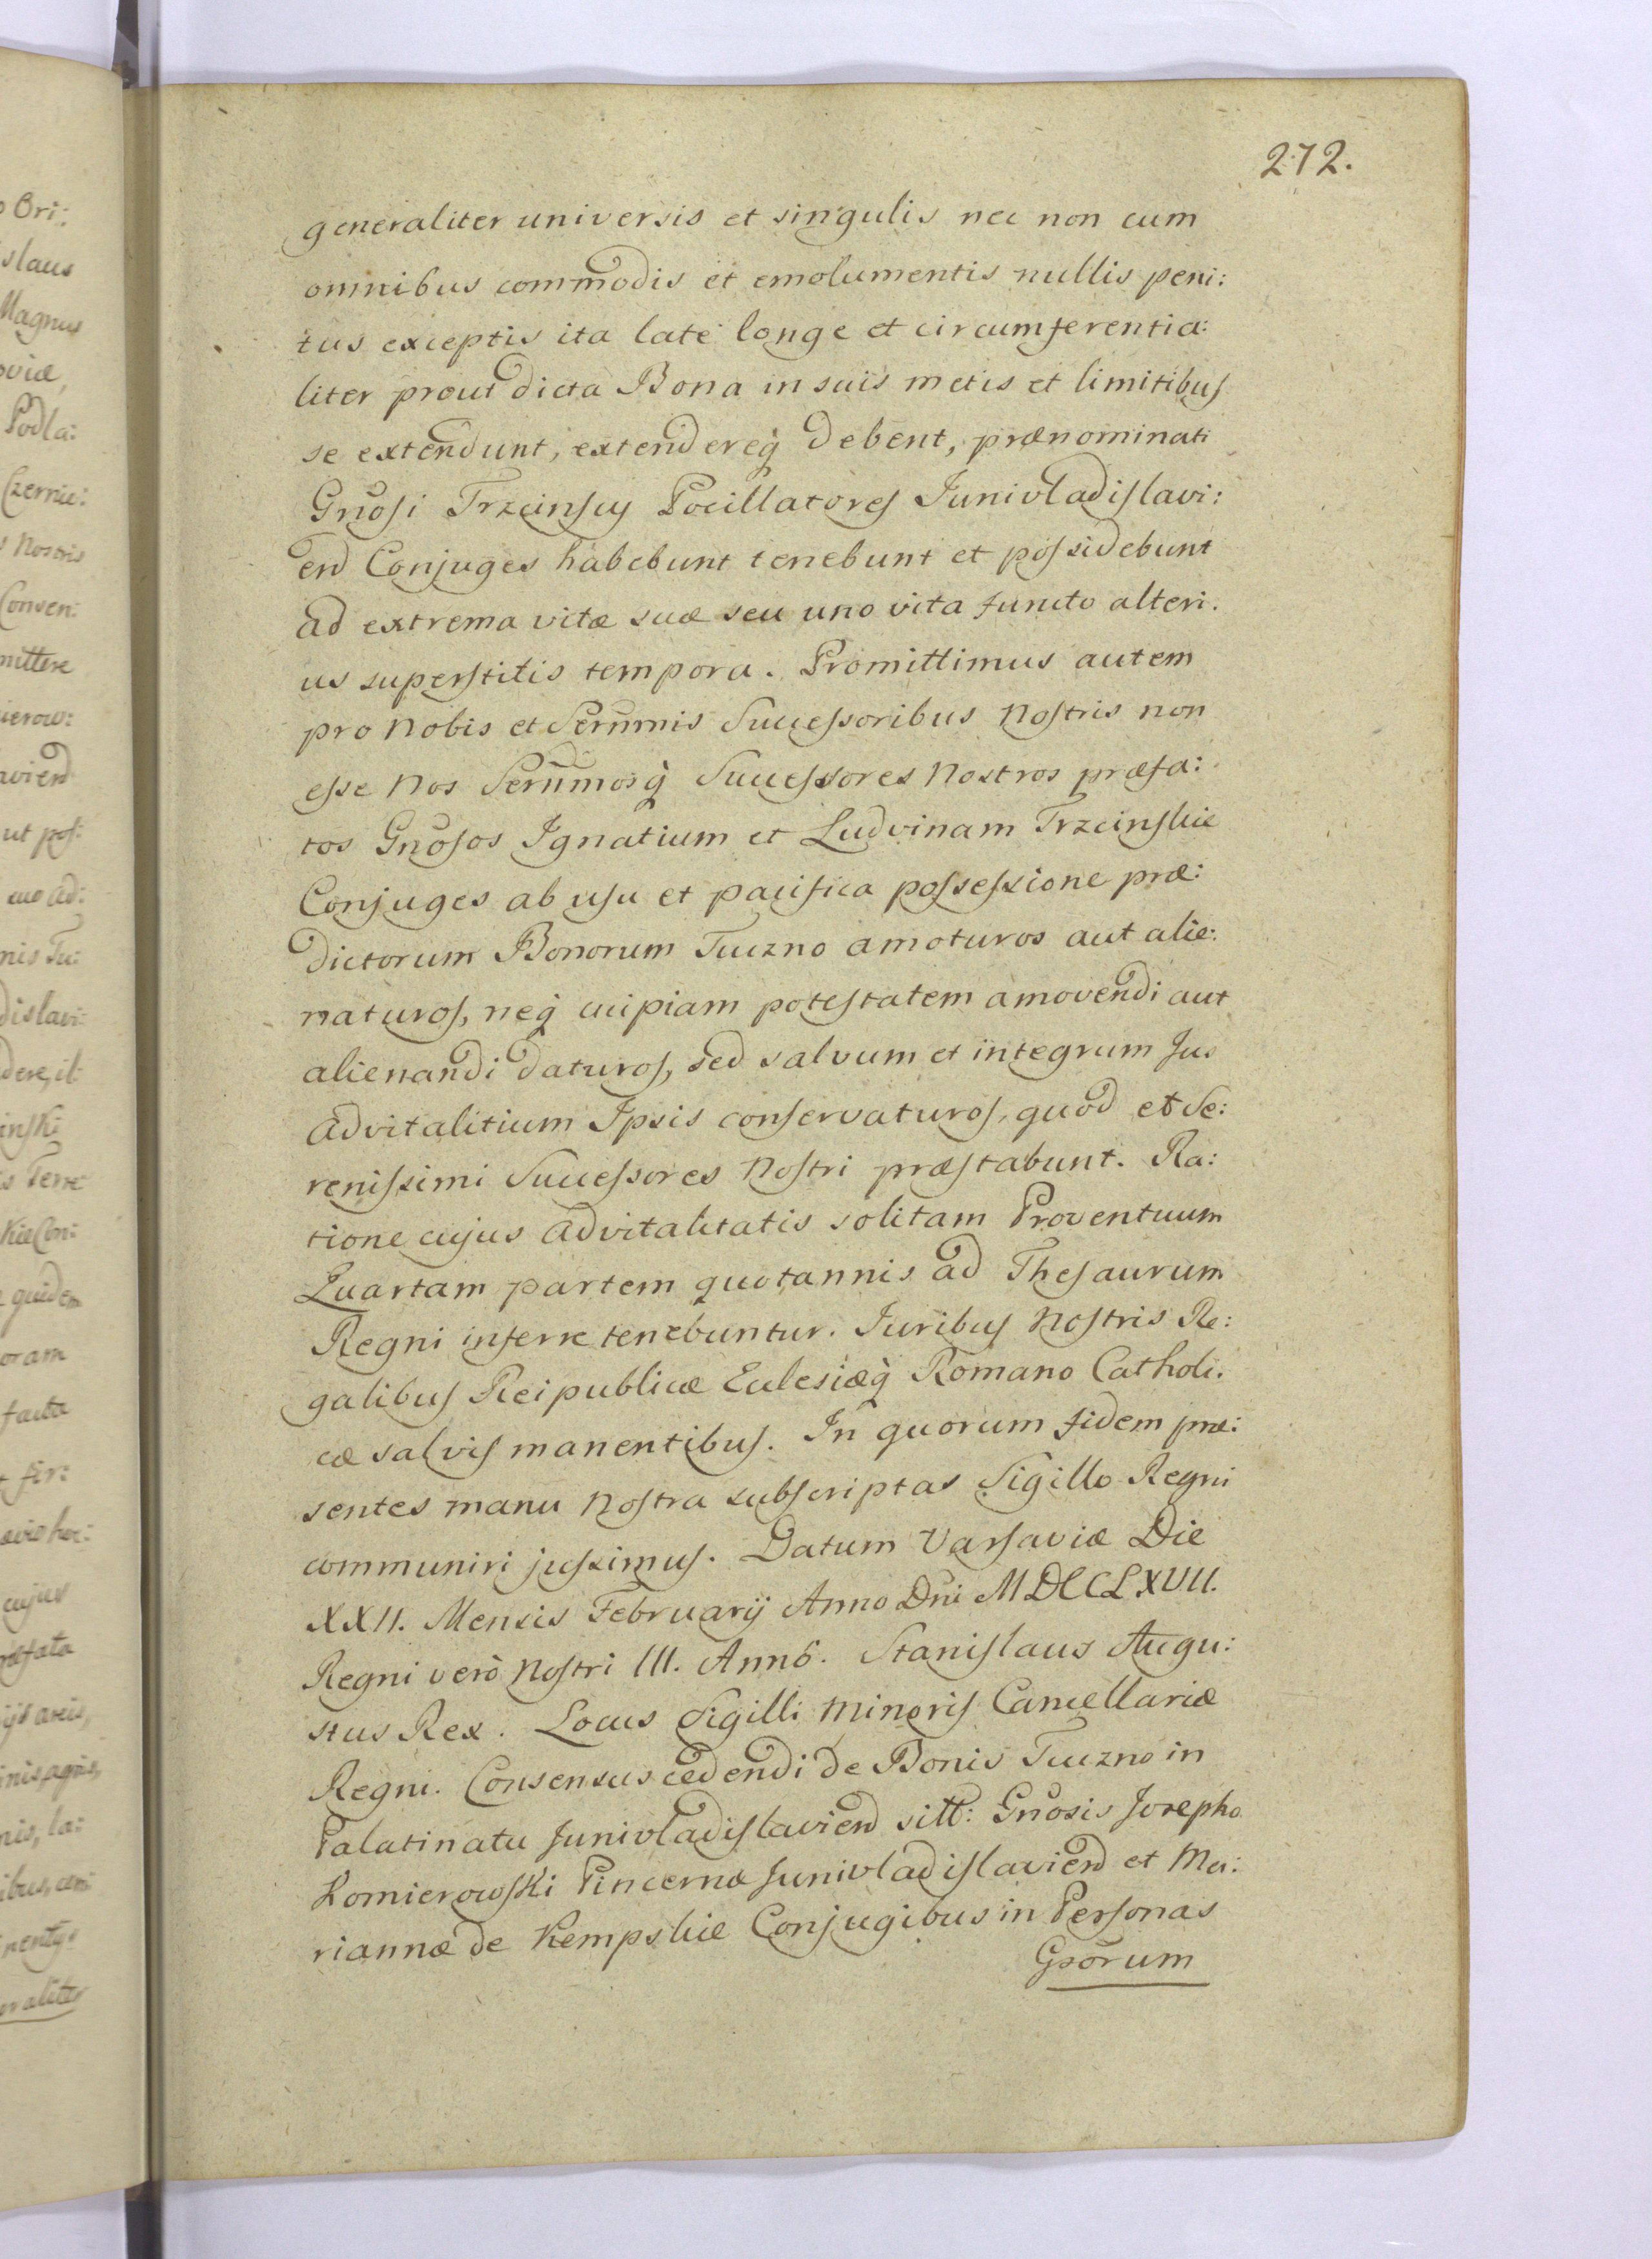 272.
generaliter universis et singulis nec non cum
omnibus commodis et emolumentis nullis peni:
tus exceptis ita late longe et circumferentia:
liter prout dicta Bona in suis metis et limitibus
se extendunt, extendereq̀ debent, prænominati
Gnosi Trzcinscy Pocillatores Junivladislavi:
end Conjuges habebunt tenebunt et possidebunt
ad extrema vitæ suæ seu uno vita functo alteri.
us superstitis tempora. Promittimus autem
pro Nobis et Serñmis Successoribus Nostris non
esse Nos Serñmosq̀ Successores Nostros præfa:
tos Gnosos Ignatium et Ludvinam Trzcinskie
Conjuges ab usu et pacifica possessione præ:
dictorum Bonorum Tuczno amoturos aut alie:
naturos, neq̀ cuipiam potestatem amovendi aut
alienandi daturos, sed salvum et integrum Jus
advitalitium Ipsis conservaturos, quod et Se:
renissimi Successores Nostri præstabunt. Ra:
tione cujus advitalitatis solitam Proventuum
Quartam partem quotannis ad Thesaurum
Regni inferre tenebuntur. Juribus Nostris Re:
galibus Reipublicæ Eclesiæq̀ Romano Catholi.
cæ salvis manentibus. In quorum fidem præ:
sentes manu Nostra subscriptas Sigillo Regni
communiri jussimus. Datum Varsaviæ Die
XXII. Mensis Februarij Anno Dni MDCCLXVII.
Regni verò Nostri III. Anno. Stanislaus Augu:
stus Rex. Locus Sigilli Minoris Cancellariæ
Regni. Consensus cedendi de Bonis Tuczno in
Palatinatu Junivladislaviend sitt: Gnosis Josepho
Łomierowski Pincernæ Junivladislaviend et Ma:
riannæ de Kempskie Conjugibus in Personas
Gsorum